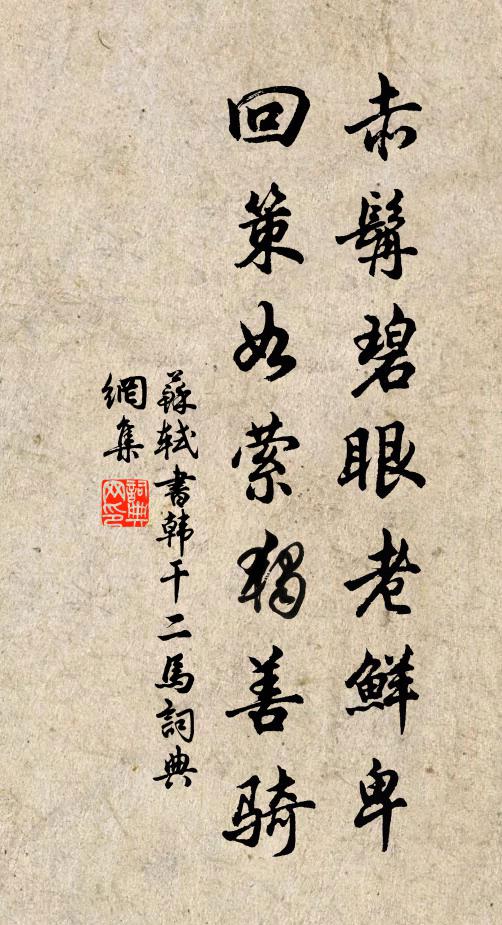 赤髯碧眼老鮮卑
回策如萦獨善骑
蘇軾書韩干二馬詞典
網集
詞典
网印